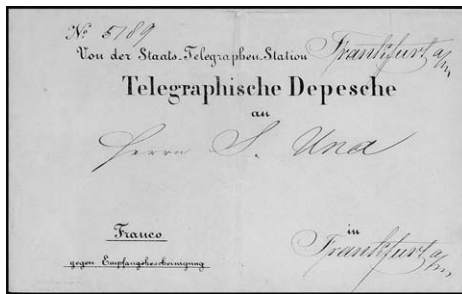 No 5189
Von der Staats-Telegraphen-Station Frankfurt a/m,
Telegraphische Depesche
an
Herrn S. Una
Franco
gegen Empfangsbescheinigung
in
Frankfurt a/m,